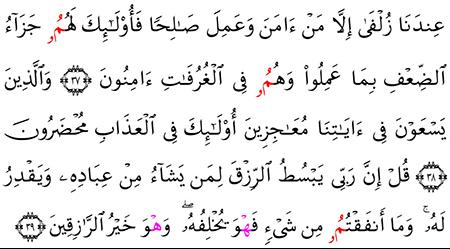 عِندَنَا زُلْفَىٰ إِلَّا مَنْ ءَامَنَ وَعَمِلَ صَـٰلِحًا فَأُو۟لَـٰٓئِكَ لَهُمُۥ جَزَآءُ
ٱلضِّعْفِ بِمَا عَمِلُوا۟ وَهُمُۥ فِى ٱلْغُرُفَـٰتِ ءَامِنُونَ ﴿٣٧﴾ وَٱلَّذِينَ
يَسْعَوْنَ فِىٓ ءَايَـٰتِنَا مُعَـٰجِزِينَ أُو۟لَـٰٓئِكَ فِى ٱلْعَذَابِ مُحْضَرُونَ
﴿٣٨﴾ قُلْ إِنَّ رَبِّى يَبْسُطُ ٱلرِّزْقَ لِمَن يَشَآءُ مِنْ عِبَادِهِۦ وَيَقْدِرُ
لَهُۥ ۚ وَمَآ أَنفَقْتُمُۥ مِن شَىْءٍ فَهْوَ يُخْلِفُهُۥ ۖ وَهْوَ خَيْرُ ٱلرَّٰزِقِينَ ﴿٣٩﴾